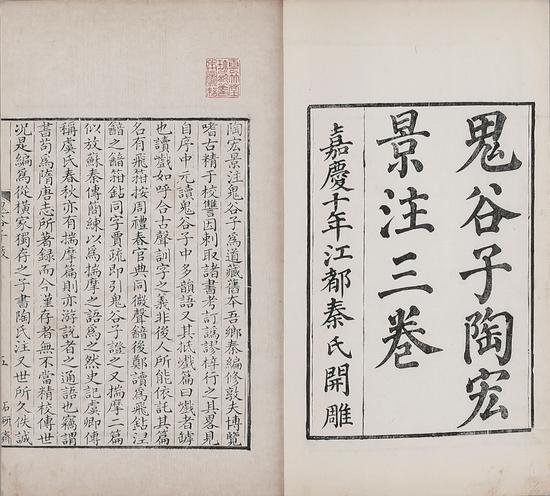 鬼谷子陶宏
景注三卷
嘉慶十年江都秦氏開雕
陶宏景注鬼谷子爲道藏舊本吾鄉秦編修敦夫博覽
嗜古精于校讐因刺取諸書考訂譌謬梓行之其畧見
自序中元讀鬼谷子中多韻語又其抵巇篇曰巇者罅
也讀巇如呼合古聲訓字之義非後人所能依託其篇
名有飛箝按周禮春官典同微聲韽後鄭讀爲飛鉆涅
韽之韽箝鉆同字賈疏即引鬼谷子證之又揣摩二篇
似放蘇秦傳簡練以爲揣摩之語爲之然史記虞卿傳
稱虞氏春秋亦有揣摩篇則亦游說者之通語也竊謂
書苟爲隋唐志所著錄而今僅存者無不當精校傳世
况是編爲從橫家獨存之子書陶氏注又世所久佚誠
鬼谷子跋 五 石研齋